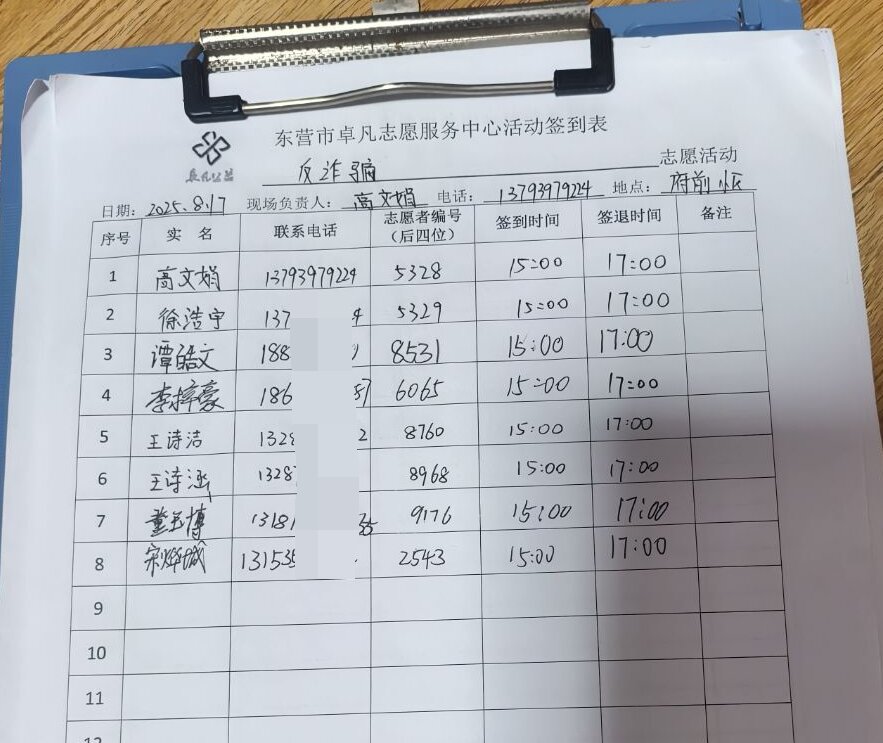 东营市卓凡志愿服务中心活动签到表
卓凡公益
反诈骗 志愿活动
日期：2025.8.17 现场负责人：高文娟 电话：13793979224 地点：府前小区
序号 实 名 联系电话 志愿者编号（后四位） 签到时间 签退时间 备注
1 高文娟 13793979224 5328 15:00 17:00
2 徐浩宇 137 4 5329 15:00 17:00
3 谭皓文 188 8531 15:00 17:00
4 李梓豪 186 57 6065 15:00 17:00
5 王诗洁 1328 2 8760 15:00 17:00
6 王诗涵 1328 8968 15:00 17:00
7 董玉博 1318 35 9176 15:00 17:00
8 宋烨城 131535 2543 15:00 17:00
9
10
11
12